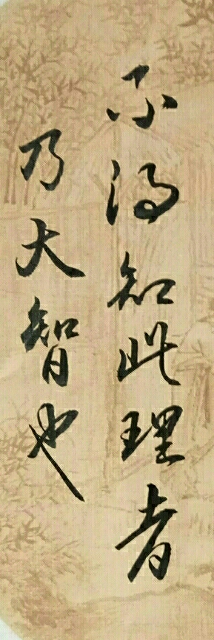 不得知此理者
乃大智也